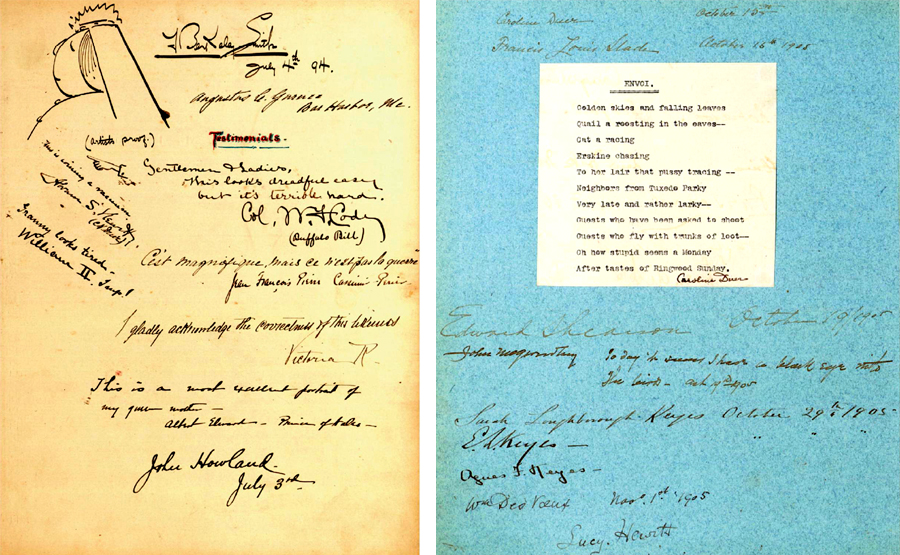 F. Berkeley Smith
July 4th 94.
Augustus C. Gurnee
Bar Harbor, Me.
(artists proof.)
Testimonials.
Gentlemen & Ladies,
this looks dreadful easy
but it's terrible hard.
Col. W. F. Cody
(Buffalo Bill)
This is winning a
Abram S. Hewitt
Granny looks tired—
William II. Imp!
C'est magnifique, mais ce n'est pas la guerre
Jean François Casimir Perier
I gladly acknowledge the correctness of this likeness
Victoria R.
This is a most excellent portrait of
my queen mother—
Albert Edward — Prince of Wales—
John Howland.
July 3rd
Caroline Duer October 15th
Francis Louis Slade October 16th 1905
ENVOI.
Golden skies and falling leaves
Quail a roosting in the eaves--
Cat a racing
Erskine chasing
To her lair that pussy tracing --
Neighbors from Tuxedo Parky
Very late and rather larky--
Guests who have been asked to shoot
Guests who fly with trunks of loot--
Oh how stupid seems a Monday
After tastes of Ringwood Sunday.
Caroline Duer
Edward Shearson October 1905
John
Today is a black eye
the birds — 1905
Sarah Loughborough Keyes October 29th 1905
E. L. Keyes — " " "
Agnes F. Keyes —
Wm Des Voeux Nov. 1st 1905
Lucy Hewitt